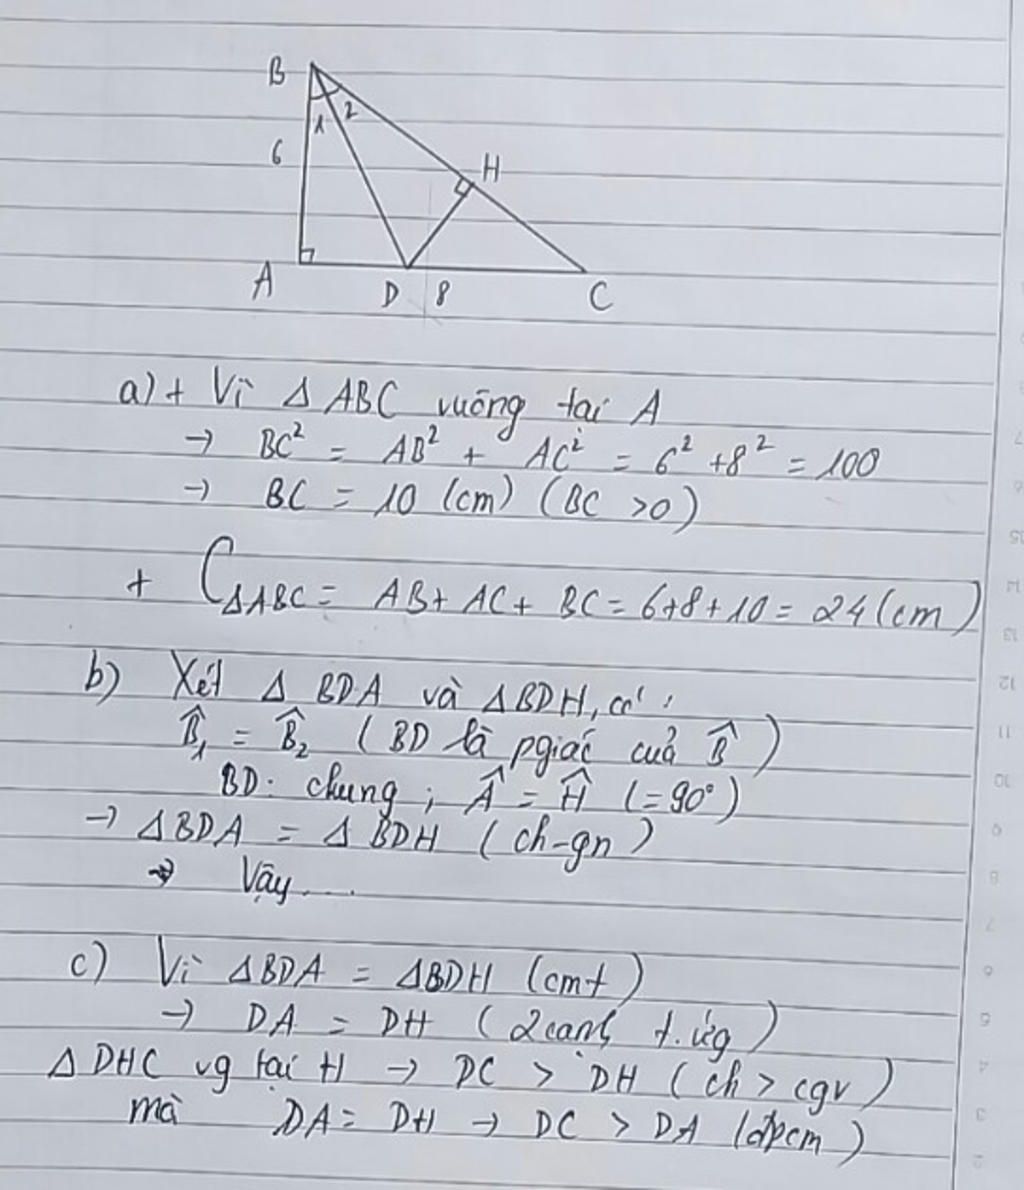 B
1 2
6
H
A D 8 C
a) + Vì Δ ABC vuông tại A
→ BC² = AB² + AC² = 6² + 8² = 100
→ BC = 10 (cm) (BC > 0)
+ C_ΔABC = AB + AC + BC = 6+8+10 = 24 (cm)
b) Xét Δ BDA và ΔBDH, có :
B̂₁ = B̂₂ (BD là pgiác của B̂)
BD: chung ; Â = Ĥ (=90°)
→ ΔBDA = Δ BDH (ch-gn)
→ Vậy....
c) Vì ΔBDA = ΔBDH (cmt)
→ DA = DH (2 cạnh t.ứg)
Δ DHC vg tại H → DC > DH (ch > cgv)
mà DA = DH → DC > DA (đpcm)